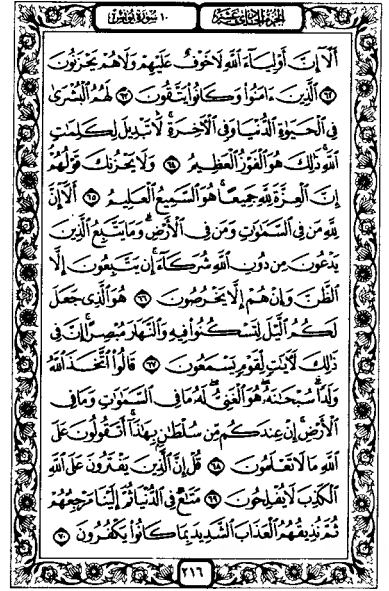 الجزء الحادي عشر ١٠ سورة يونس
أَلَآ إِنَّ أَوْلِيَآءَ ٱللَّهِ لَا خَوْفٌ عَلَيْهِمْ وَلَا هُمْ يَحْزَنُونَ
۝٦٢ ٱلَّذِينَ ءَامَنُوا۟ وَكَانُوا۟ يَتَّقُونَ ۝٦٣ لَهُمُ ٱلْبُشْرَىٰ
فِى ٱلْحَيَوٰةِ ٱلدُّنْيَا وَفِى ٱلْءَاخِرَةِ ۚ لَا تَبْدِيلَ لِكَلِمَٰتِ
ٱللَّهِ ۚ ذَٰلِكَ هُوَ ٱلْفَوْزُ ٱلْعَظِيمُ ۝٦٤ وَلَا يَحْزُنكَ قَوْلُهُمْ
إِنَّ ٱلْعِزَّةَ لِلَّهِ جَمِيعًا ۚ هُوَ ٱلسَّمِيعُ ٱلْعَلِيمُ ۝٦٥ أَلَآ إِنَّ
لِلَّهِ مَن فِى ٱلسَّمَٰوَٰتِ وَمَن فِى ٱلْأَرْضِ ۗ وَمَا يَتَّبِعُ ٱلَّذِينَ
يَدْعُونَ مِن دُونِ ٱللَّهِ شُرَكَآءَ ۚ إِن يَتَّبِعُونَ إِلَّا
ٱلظَّنَّ وَإِنْ هُمْ إِلَّا يَخْرُصُونَ ۝٦٦ هُوَ ٱلَّذِى جَعَلَ
لَكُمُ ٱلَّيْلَ لِتَسْكُنُوا۟ فِيهِ وَٱلنَّهَارَ مُبْصِرًا ۚ إِنَّ فِى
ذَٰلِكَ لَءَايَٰتٍ لِّقَوْمٍ يَسْمَعُونَ ۝٦٧ قَالُوا۟ ٱتَّخَذَ ٱللَّهُ
وَلَدًا ۗ سُبْحَٰنَهُۥ ۖ هُوَ ٱلْغَنِىُّ ۖ لَهُۥ مَا فِى ٱلسَّمَٰوَٰتِ وَمَا فِى
ٱلْأَرْضِ ۚ إِنْ عِندَكُم مِّن سُلْطَٰنٍۭ بِهَٰذَآ ۚ أَتَقُولُونَ عَلَى
ٱللَّهِ مَا لَا تَعْلَمُونَ ۝٦٨ قُلْ إِنَّ ٱلَّذِينَ يَفْتَرُونَ عَلَى ٱللَّهِ
ٱلْكَذِبَ لَا يُفْلِحُونَ ۝٦٩ مَتَٰعٌ فِى ٱلدُّنْيَا ثُمَّ إِلَيْنَا مَرْجِعُهُمْ
ثُمَّ نُذِيقُهُمُ ٱلْعَذَابَ ٱلشَّدِيدَ بِمَا كَانُوا۟ يَكْفُرُونَ ۝٧٠
٢١٦